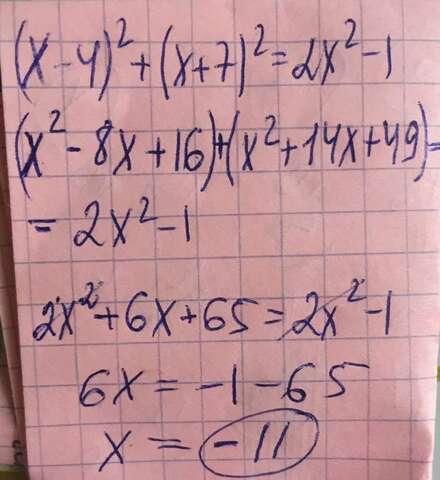 (x-4)²+(x+7)²=2x²-1
(x²-8x+16)+(x²+14x+49)=
=2x²-1
2x²+6x+65=2x²-1
6x=-1-65
x=-11